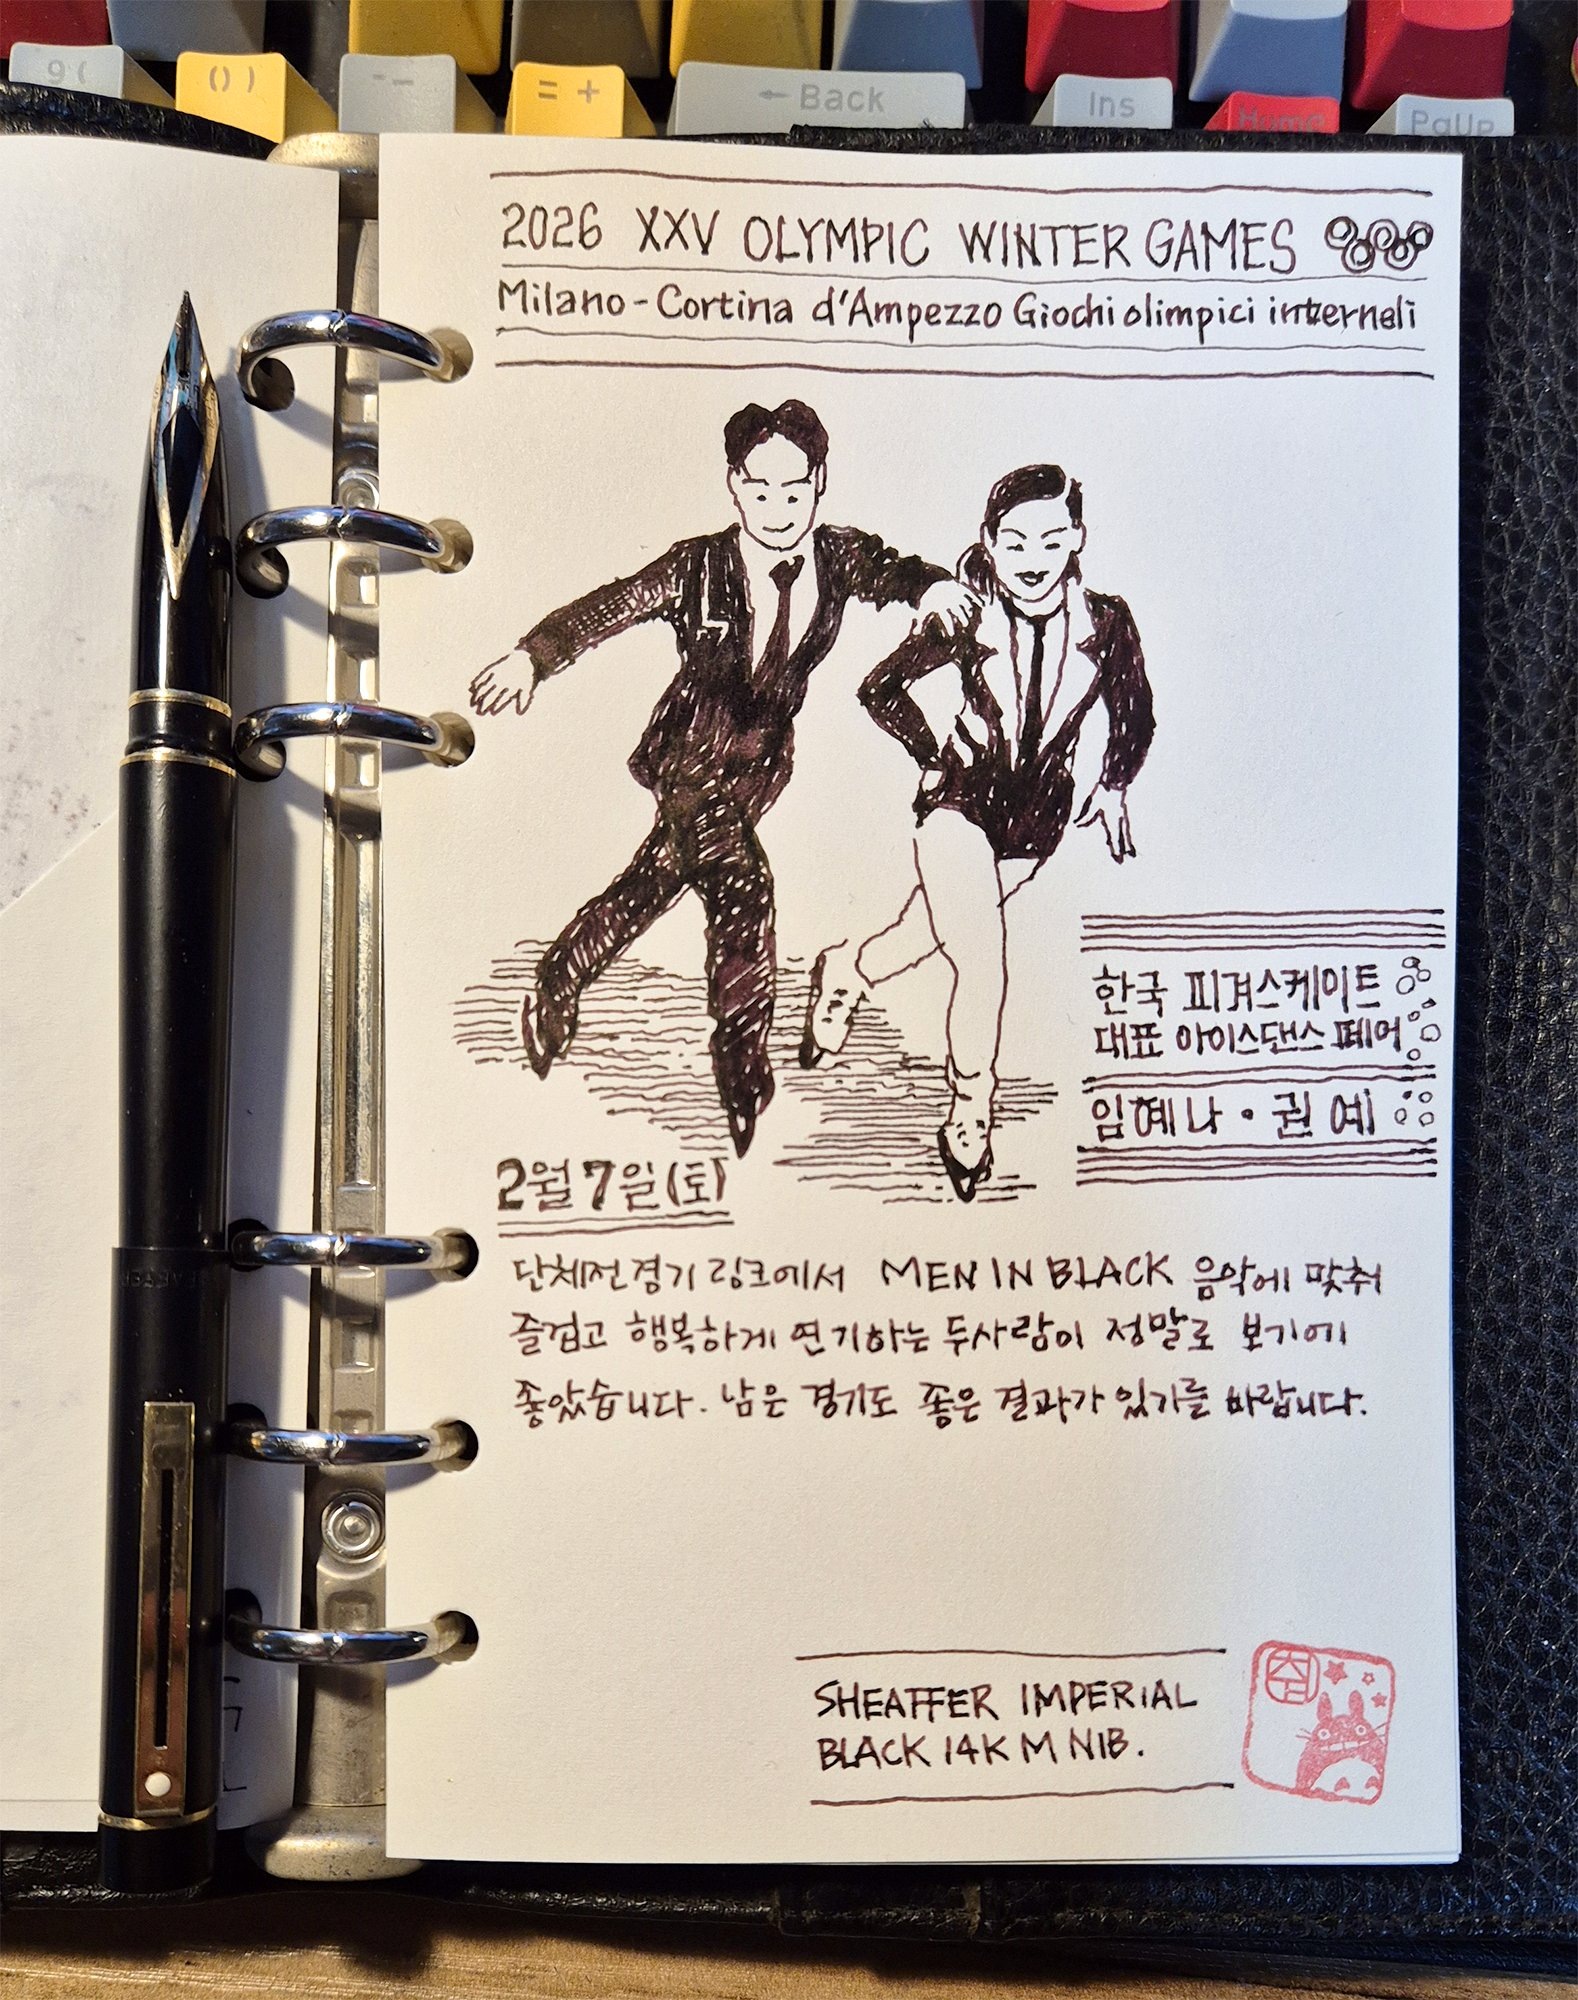 9 (
0 )
- -
= +
← Back
Ins
Home
PgUp
2026 XXV OLYMPIC WINTER GAMES
Milano-Cortina d'Ampezzo Giochi olimpici interneli
한국 피겨스케이트
대표 아이스댄스 페어
임혜나 · 권 예
2월 7일(토)
단체전경기 링크에서 MEN IN BLACK 음악에 맞춰
즐겁고 행복하게 연기하는 두사람이 정말로 보기에
좋았습니다. 남은 경기도 좋은 결과가 있기를 바랍니다.
SHEAFFER IMPERIAL
BLACK 14K M NIB.